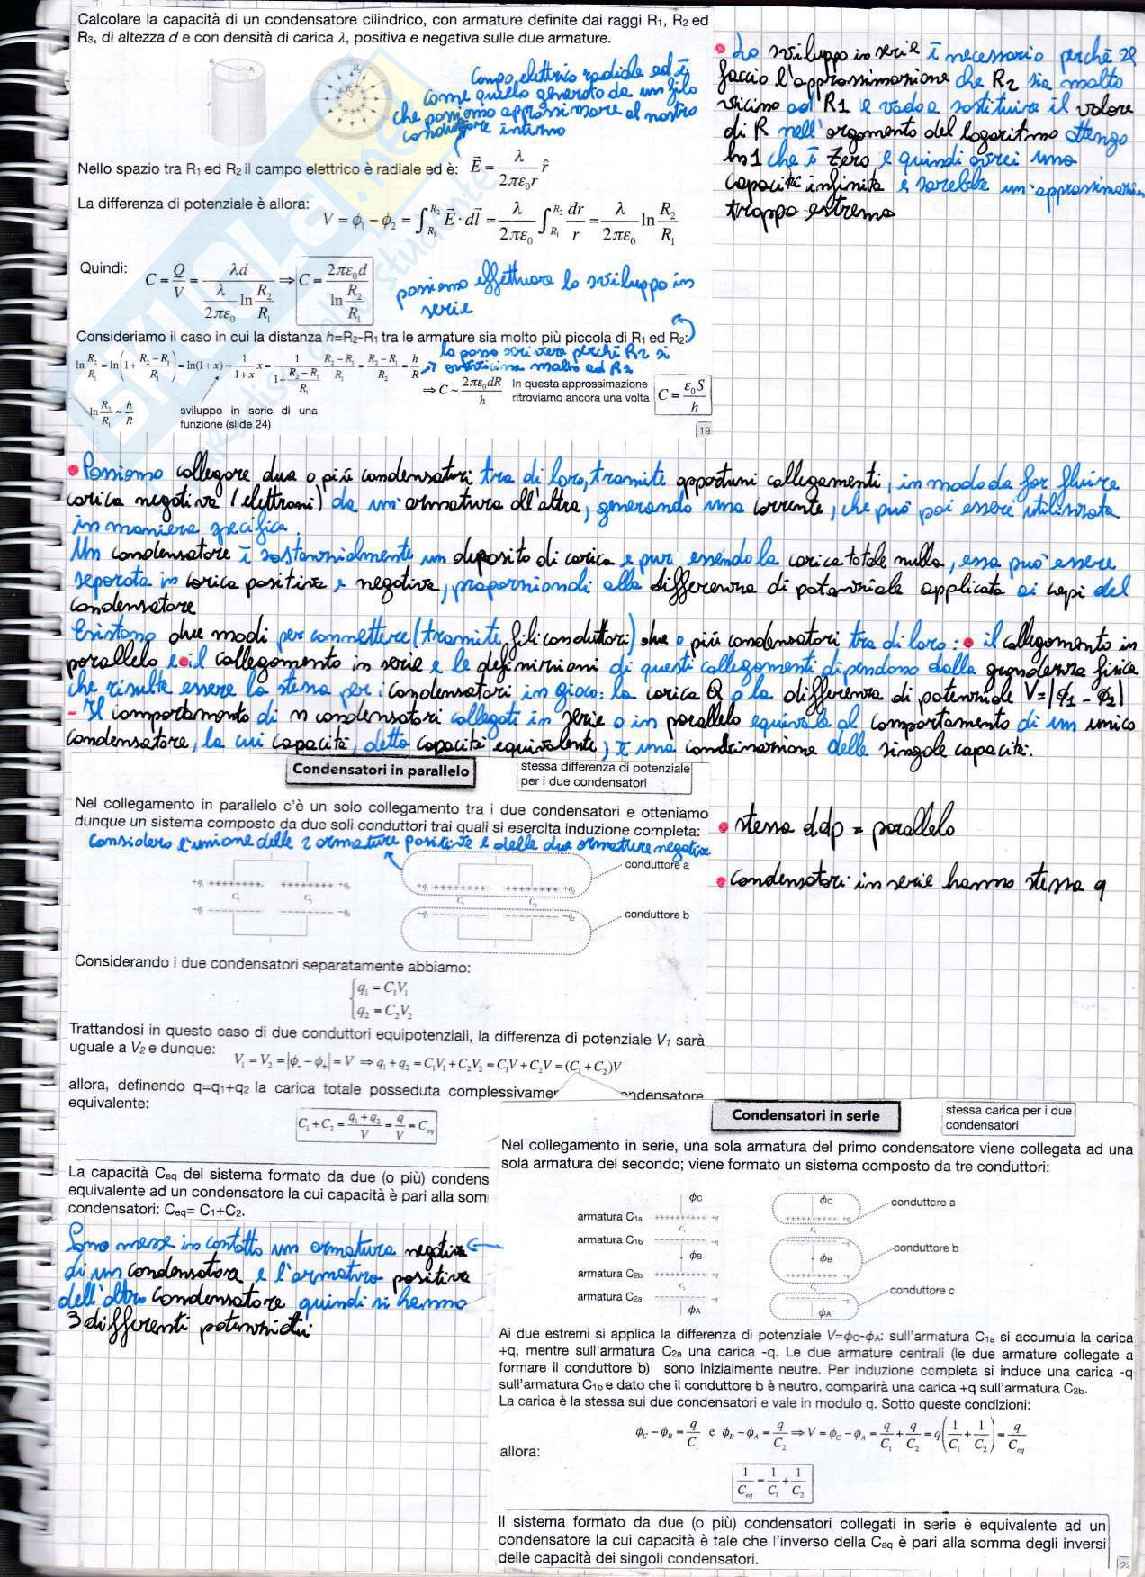 Calcolare la capacità di un condensatore cilindrico, con armature definite dai raggi R1, R2 ed
R3, di altezza d e con densità di carica λ, positiva e negativa sulle due armature.
Campo elettrico radiale ed è
come quello generato da un filo
che possiamo approssimare al nostro
conduttore interno
Nello spazio tra R1 ed R2 il campo elettrico è radiale ed è: E = λ / 2πε0r r̂
La differenza di potenziale è allora:
V = ϕ1 − ϕ2 = ∫R1R2 E · dl = λ/2πε0 ∫R1R2 dr/r = λ/2πε0 ln R2/R1
Quindi: C = Q/V = λd / (λ/2πε0 ln R2/R1) ⇒ C = 2πε0d / ln R2/R1
possiamo effettuare lo sviluppo in
serie
Consideriamo il caso in cui la distanza h=R2-R1 tra le armature sia molto più piccola di R1 ed R2:
lo posso scrivere perché R2 si
⇒ C ~ 2πε0dR / h
In questa approssimazione
ritroviamo ancora una volta
C = ε0S / h
ln R2/R1 ~ h/R
sviluppo in serie di una
funzione (slide 24)
19
• Lo sviluppo in serie è necessario perché se
faccio l'approssimazione che R2 sia molto
vicino ad R1 e vado a sostituire il valore
di R nell'argomento del logaritmo ottengo
ln1 che è zero e quindi avrei una
capacità infinita e sarebbe un'approssimazione
troppo estrema
• Possiamo collegare due o più condensatori tra di loro, tramite opportuni collegamenti, in modo da far fluire
carica negativa (elettroni) da un'armatura all'altra, generando una corrente, che può poi essere utilizzata
in maniera specifica.
Un condensatore è sostanzialmente un deposito di carica e pur essendo la carica totale nulla, essa può essere
separata in carica positiva e negativa, proporzionali alla differenza di potenziale applicata ai capi del
condensatore
Esistono due modi per connettere (tramite fili conduttori) due o più condensatori tra di loro: • il collegamento in
parallelo e • il collegamento in serie e le definizioni di questi collegamenti dipendono dalla grandezza fisica
che risulta essere la stessa per i condensatori in gioco: la carica Q o la differenza di potenziale V=|φ1 - φ2|
- Il comportamento di n condensatori collegati in serie o in parallelo equivale al comportamento di un unico
condensatore, la cui capacità, detta capacità equivalente, è una combinazione delle singole capacità.
Condensatori in parallelo
stessa differenza di potenziale
per i due condensatori
Nel collegamento in parallelo c'è un solo collegamento tra i due condensatori e otteniamo
dunque un sistema composto da due soli conduttori tra i quali si esercita induzione completa:
Considero l'unione delle 2 armature positive e delle due armature negative
conduttore a
conduttore b
• stessa ddp = parallelo
• condensatori in serie hanno stessa q
Considerando i due condensatori separatamente abbiamo:
q1 = C1V1
q2 = C2V2
Trattandosi in questo caso di due conduttori equipotenziali, la differenza di potenziale V1 sarà
uguale a V2 e dunque:
V1 = V2 = |ϕ− − ϕ+| = V ⇒ q1 + q2 = C1V1 + C2V2 = C1V + C2V = (C1 + C2)V
allora, definendo q=q1+q2 la carica totale posseduta complessivamen
condensatore
equivalente:
C1 + C2 = (q1 + q2)/V = q/V = Ceq
La capacità Ceq del sistema formato da due (o più) condens
equivalente ad un condensatore la cui capacità è pari alla som
condensatori: Ceq= C1+C2.
Sono messe in contatto un'armatura negativa
di un condensatore e l'armatura positiva
dell'altro condensatore quindi si hanno
3 differenti potenziali
Condensatori in serie
stessa carica per i due
condensatori
Nel collegamento in serie, una sola armatura del primo condensatore viene collegata ad una
sola armatura del secondo; viene formato un sistema composto da tre conduttori:
ϕC
armatura C1a
armatura C1b
ϕB
armatura C2b
armatura C2a
ϕA
ϕC
conduttore a
ϕB
conduttore b
conduttore c
ϕA
Ai due estremi si applica la differenza di potenziale V=ϕC-ϕA: sull'armatura C1a si accumula la carica
+q, mentre sull'armatura C2a una carica -q. Le due armature centrali (le due armature collegate a
formare il conduttore b) sono inizialmente neutre. Per induzione completa si induce una carica -q
sull'armatura C1b e dato che il conduttore b è neutro, comparirà una carica +q sull'armatura C2b.
La carica è la stessa sui due condensatori e vale in modulo q. Sotto queste condizioni:
ϕC − ϕB = q/C1 e ϕB − ϕA = q/C2 ⇒ V = ϕC − ϕA = q/C1 + q/C2 = q(1/C1 + 1/C2) = q/Ceq
allora:
1/Ceq = 1/C1 + 1/C2
Il sistema formato da due (o più) condensatori collegati in serie è equivalente ad un
condensatore la cui capacità è tale che l'inverso della Ceq è pari alla somma degli inversi
delle capacità dei singoli condensatori.